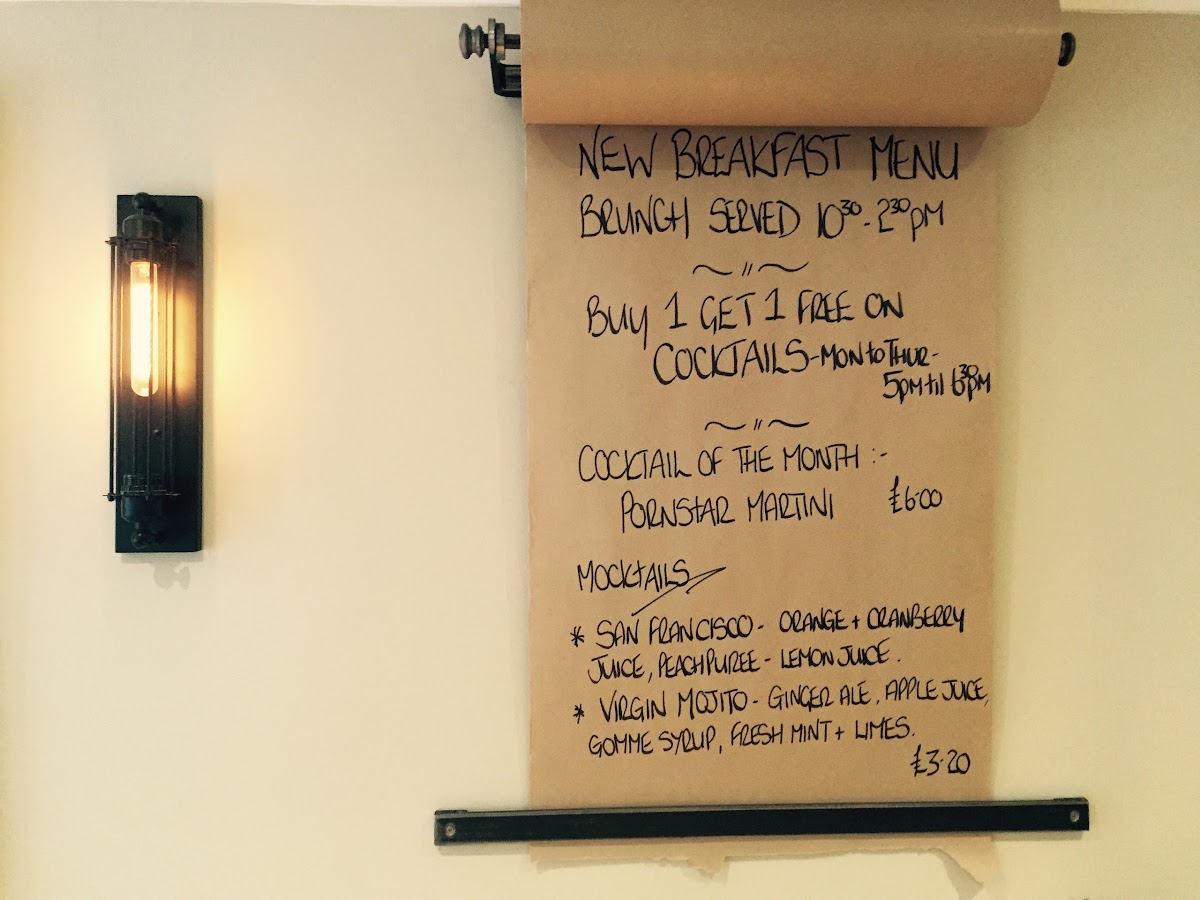 NEW BREAKFAST MENU
BRUNCH SERVED 10³⁰ - 2³⁰PM
BUY 1 GET 1 FREE ON
COCKTAILS - MON to THUR -
5PM til 6³⁰PM
COCKTAIL OF THE MONTH :-
PORNSTAR MARTINI £6.00
MOCKTAILS
* SAN FRANCISCO - ORANGE + CRANBERRY
JUICE, PEACH PUREE - LEMON JUICE.
* VIRGIN MOJITO - GINGER ALE, APPLE JUICE,
GOMME SYRUP, FRESH MINT + LIMES.
£3.20